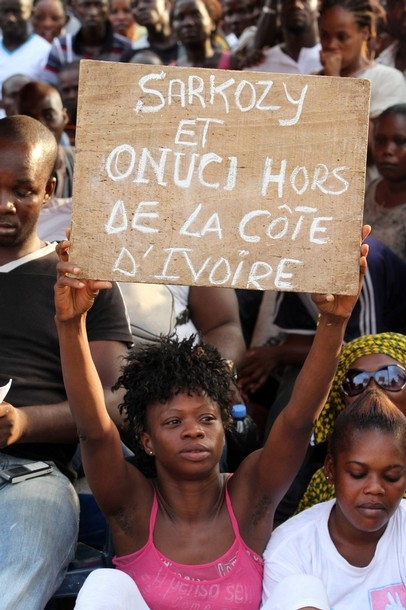 SARKOZY
ET
ONUCI HORS
DE LA CÔTE
D'IVOIRE